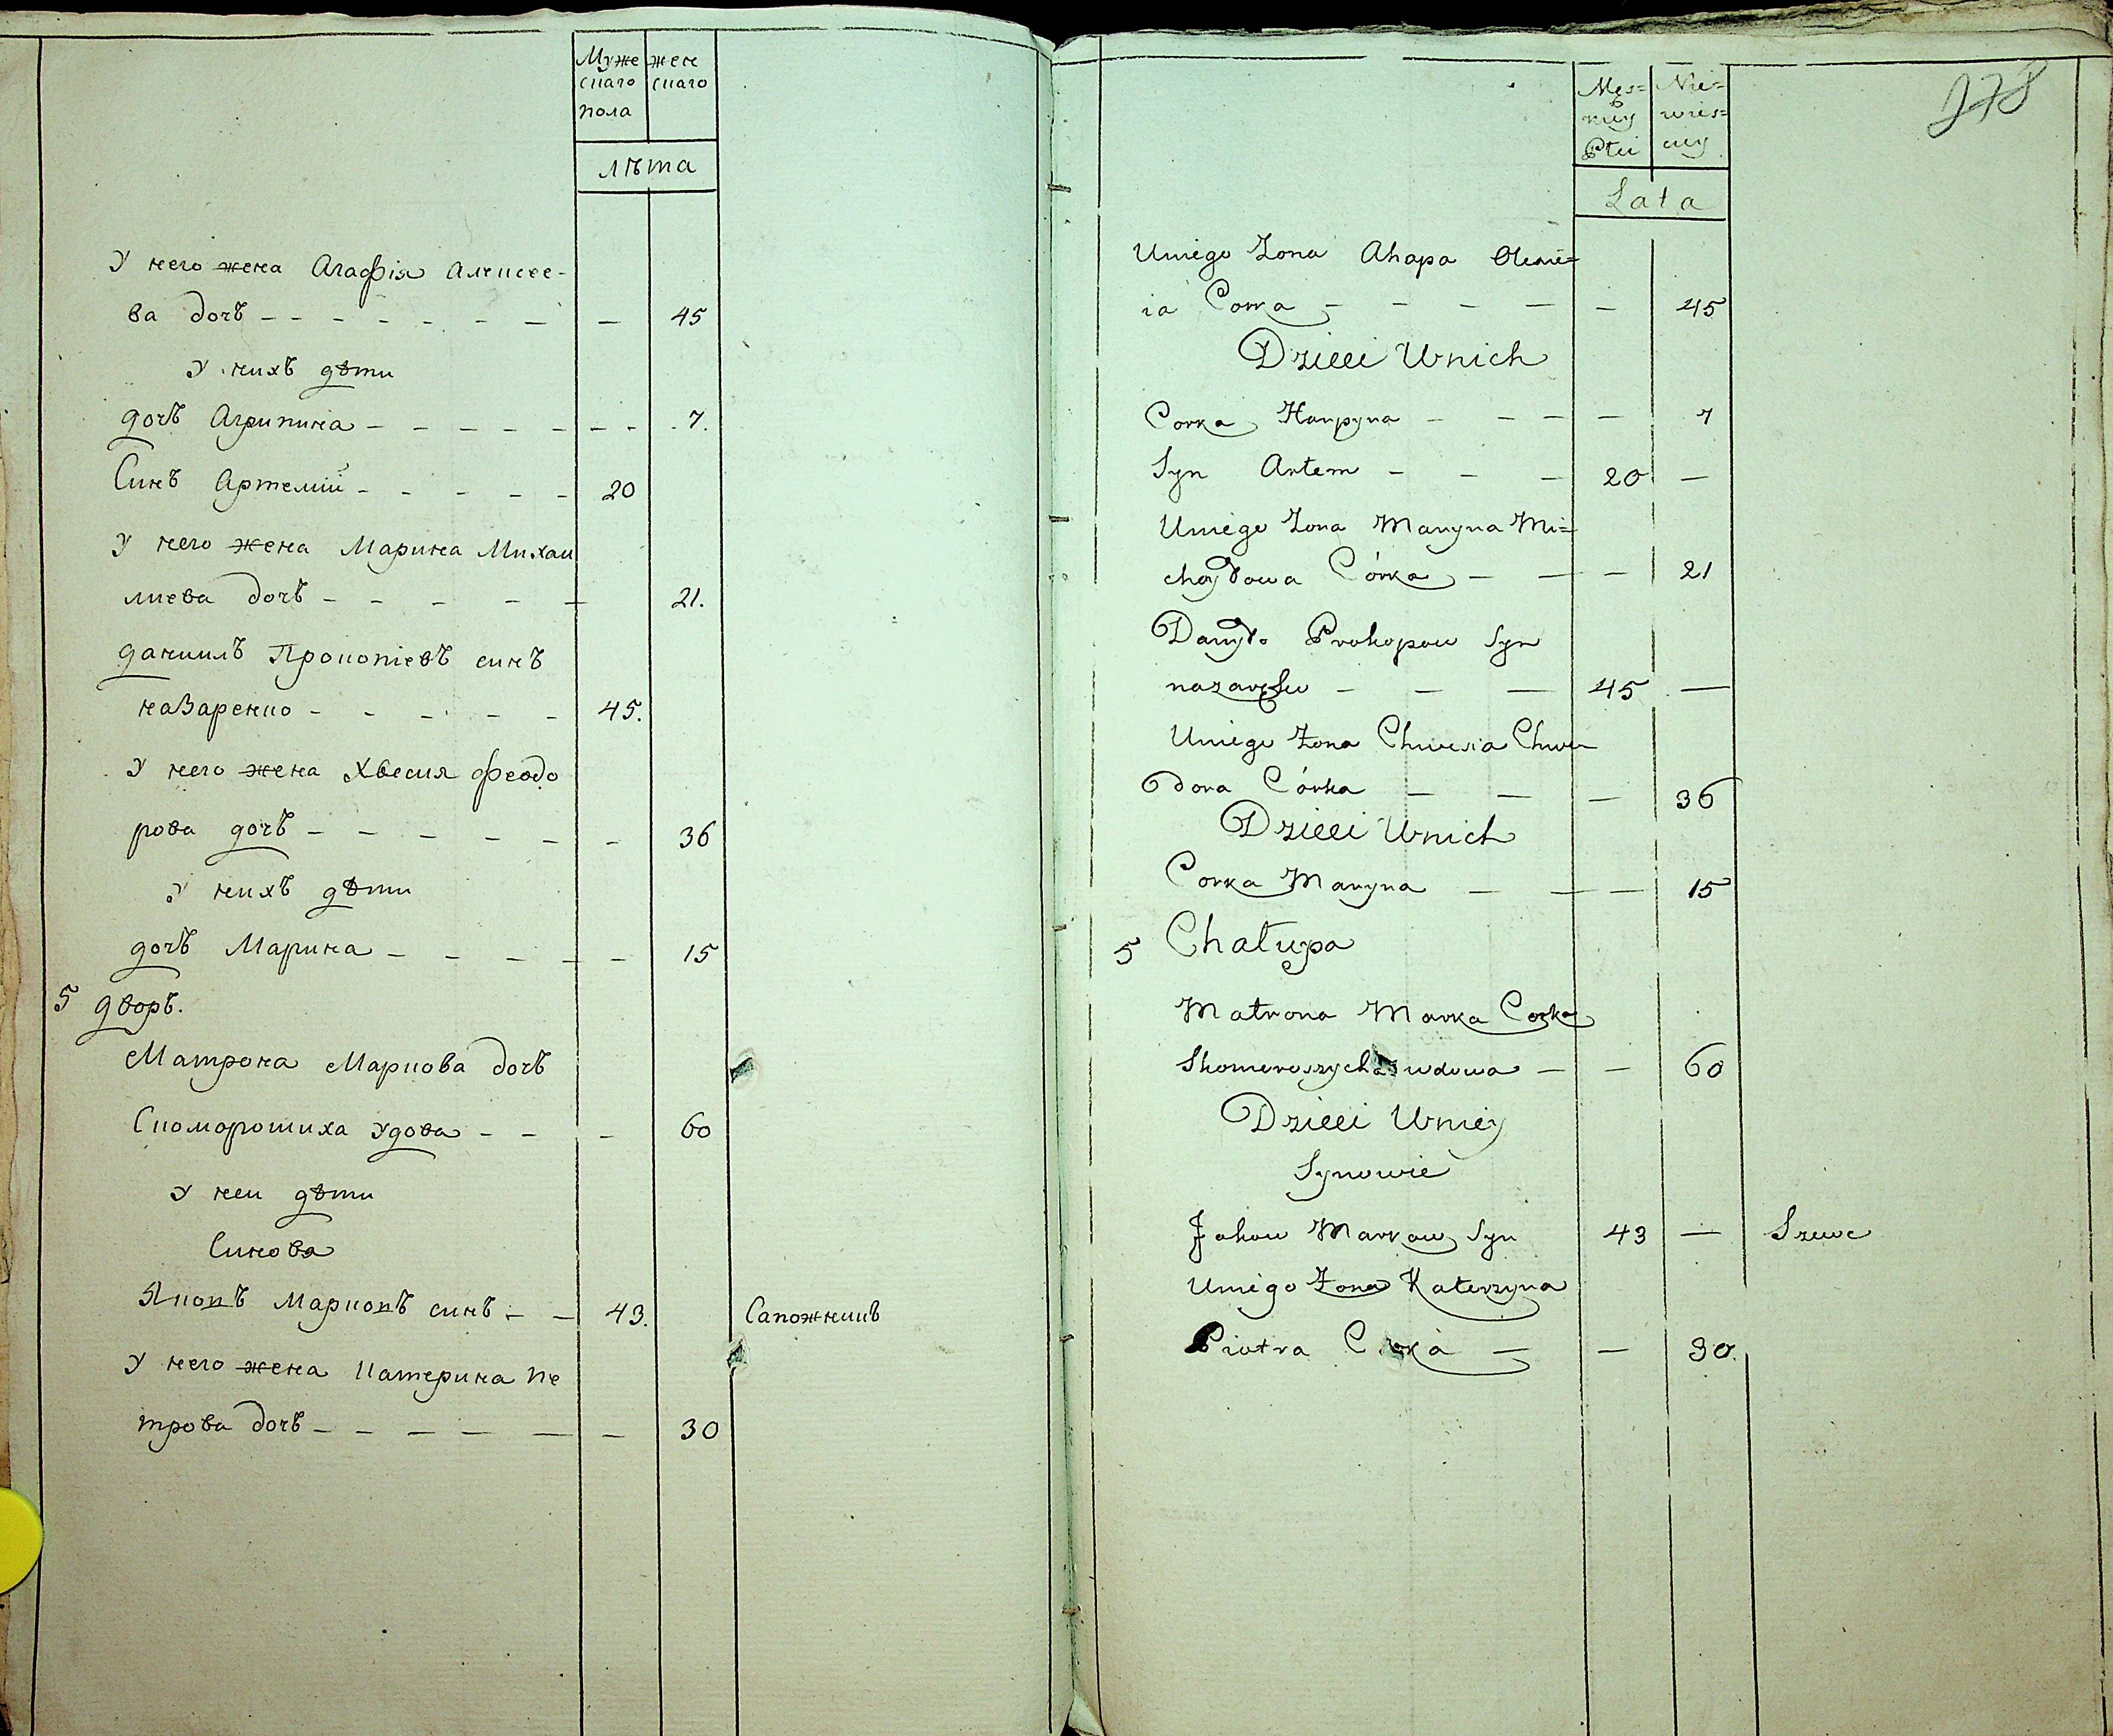 Муже жен
скаго скаго
пола
лѣта
У него жена Агафія Алексее-
ва дочъ - - - - - - - - 45
У нихъ дѣти
дочъ Агрипина - - - - - - - 7.
Синъ Артемій - - - - - 20
У него жена Марина Михаи
лиева дочъ - - - - - 21.
Даниилъ Прокопіевъ синъ
назаренко - - - - - 45.
У него жена Хвесия Феодо
рова дочъ - - - - - - 36
У нихъ дѣти
дочъ Марина - - - - - 15
5 дворъ.
Матрона Маркова дочъ
Скоморошиха удова - - - 60
У неи дѣти
Синова
Яковъ Марковъ синъ - - 43. Сапожникъ
У него жена Катерина Пе
трова дочъ - - - - - - 30
978
Męs= Nie=
kiey wies=
Płci ciey
Lata
Uniego Żona Ahapa
ia Corka - - - - - 45
Dzieci Unich
Corka Harpyna - - - - 7
Syn Artem - - - 20 -
Uniego Żona Maryna Mi=
chayłowa Córka - - - 21
Danyło Prokopow Syn
nazarenko - - - 45 -
Uniego Żona Chwesia Chwe
dora Córka - - - 36
Dzieci Unich
Corka Maryna - - - 15
5 Chałupa
Matrona Marka Corka
Skomoroszycha wdowa - - 60
Dzieci Uniey
Synowie
Jakow Markow Syn 43 - Szewc
Uniego Żona Katerzyna
Piotra Corka - - 30.